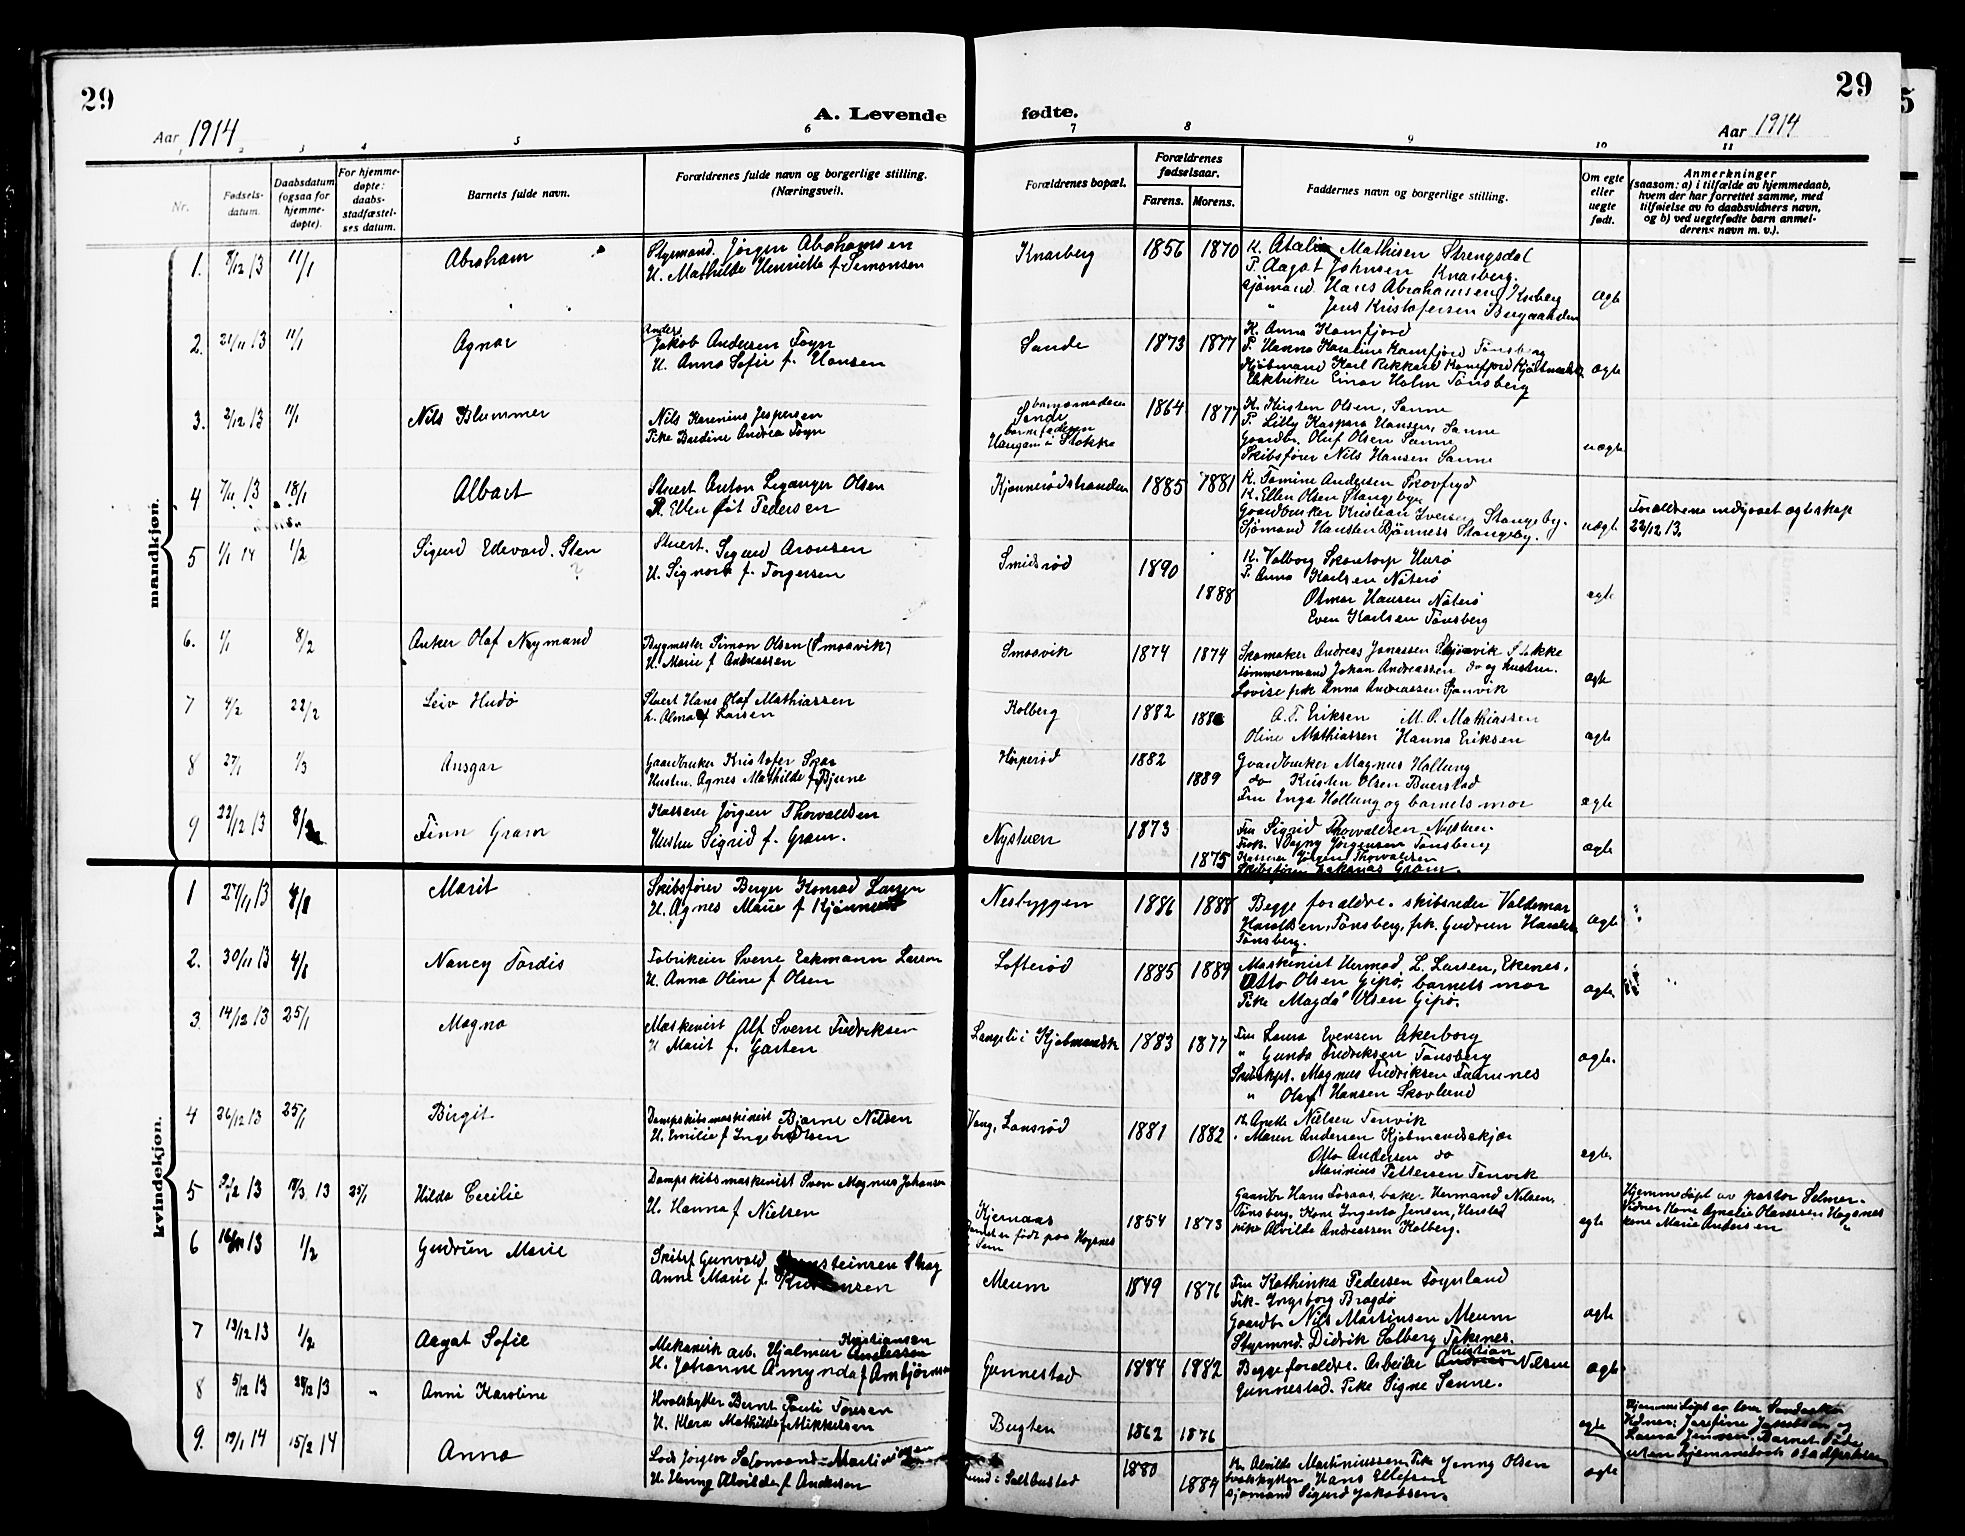 29
29
A. Levende fødte.
Aar 1914
Aar 1914
1 2 3 4 5 6 7 8 9 10 11
Nr.
Fødsels-
datum.
Daabsdatum
(ogsaa for
hjemme-
døpte).
For hjemme-
døpte:
daabs-
stadfæstel-
ses datum.
Barnets fulde navn.
Forældrenes fulde navn og borgerlige stilling.
(Næringsvei).
Forældrenes bopæl.
Forældrenes
fødselsaar.
Farens. Morens.
Faddernes navn og borgerlige stilling.
Om egte
eller
uegte
født.
Anmerkninger
(saasom: a) i tilfælde av hjemmedaab,
hvem der har forrettet samme, med
tilføielse av to daabsvidners navn,
og b) ved uegtefødte barn anmel-
derens navn m. v.).
mandkjøn.
1. 8/12 13 11/1 Abraham
Styrmand Jørgen Abrahamsen
H. Mathilde Henriette f. Simonsen
Knarberg 1856 1870
K. Atalie Mathisen Strengsdal
P. Aagot Johnsen Knarberg.
Sjømand Hans Abrahamsen
" Jens Kristofersen
ægte
2. 21/11 13 11/1 Agnar
Anders
Jakob Andersen Foyn
H. Anna Sofie f. Hansen
Sande 1873 1877
K. Anna Kamfjord
P. Hanna Karoline Kamfjord Tønsberg
Kjøbmand Karl Rikkard Kamfjord
Elektriker Einar Holm Tønsberg
ægte
3. 2/12 13 11/1 Nils Blummer
Nils Karenius Jespersen
Pike Bardine Andrea Foyn
barnemoderen
Sande
barnefaderen
Haugan i Stokke
1864 1877
K. Kirsten Olsen, Sanne
P. Lilly Kaspara Hansen, Sanne
Gaardbr. Oluf Olsen Sanne
Skibsfører Nils Hansen Sanne
uægte
4 7/11 13 18/1 Albert
Stuert Anton Leganger Olsen
P. Ellen Pedersen
Kjønnerødstranden 1885 1881
K. Tomine Andersen Skovfryd
K. Ellen Olsen Stangeby
Gaardbruker Kristian Iversen Stangeby.
Sjømand Hansten Bjønness Stangeby.
uægte
Forældrene indgaaet ægteskap
22/12 13.
5 1/1 14 1/2 Sigurd Edvard Sten
?
Stuert. Sigurd Aronsen
H. Signora f. Torgersen
Smidsrød 1890
1888
K. Valborg Skaretorp Husø
P. Anna Karlsen Nøterø
Otmar Hansen Nøterø
Even Karlsen Tønsberg
ægte
6. 1/1 8/2 Anker Olaf Nymand
Bygmester Simon Olsen (Smaavik)
H. Marie f Andreassen
Smaavik 1874 1874
Skomaker Andreas Jonassen Stokke
tømmermand Johan Andreassen do og hustru.
Lovise frk Anna Andreassen
ægte
7 4/2 22/2 Leiv Hudø
Stuert Hans Olaf Mathiassen
H. Alma f Larsen
Kolberg 1882
A. T. Eriksen M. O. Mathiassen
Oline Mathiassen Hanna Eriksen
ægte
8 27/1 1/3 Ansgar
Gaardbruker Kristofer Skar
Hustru Agnes Mathilde f Bjerne
Hørperød 1882
1889
Gaardbruker Magnus Hollung
do Kristen Olsen Buerstad
Fru Inga Hollung og barnets mor
ægte
9 22/12 13 8/3 Finn Gram
Kasserer Jørgen Thorvaldsen
Hustru Sigrid f. Gram.
Nystuen 1873
1875
Fru Sigrid Thorvaldsen Nystuen.
Frøk. Dagny Jørgensen Tønsberg
Kasserer Jørgen Thorvaldsen
Skibsfører Zakarias Gram.
ægte
kvindekjøn.
1 27/11 13 4/1 Marit
Skibsfører Birger Konrad Larsen
H. Agnes Marie f Kjønnerød
Nesbyggen 1886 1888
Begge forældre. skibsreder Valdemar
Haraldsen, Tønsberg, frk. Gudrun
Tønsberg.
ægte
2. 30/11 13 4/1 Nancy Tordis
Fabrikeier Sverre Eckmann Larsen
H. Anna Oline f Olsen
Lofterød 1885 1889
Maskinist Hermod L. Larsen, Ekenes.
Otto Olsen Gipø, barnets mor
Pike Magda Olsen Gipø.
ægte
3. 14/12 13 25/1 Magna
Maskinist Alf Sverre Fredriksen
H Marit f. Garten
Langeli i Kjøbmandsk 1883 1877
Fru Laura Evensen Akerborg
" Gunda Fredriksen Tønsberg
Skibskpt. Magnus Fredriksen
" Olaf Hansen Skovlund
ægte.
4 26/12 13 25/1 Birgit
Dampskibsmaskinist Bjarne Nilsen
H. Emilie f Ingebretsen
Vang, Lansrød 1881 1882
K Anette Nielsen Tenvik
" Maren Andersen Kjøbmandsskjær
Otto Andersen do
Marinius Pettersen Tenvik
ægte
5 9/12 13 13 25/1 Hilda Cecilie
Dampskibsmaskinist Sven Magnus Johansen
H. Hanna f Nielsen
Kjernaas
født paa Høgnes
i Sem
1854 1873
Gaardbr Hans Foraas, baker Hermand Nilsen
Tønsberg, Kone Ingerta Jensen,
pike Alvilde Andreassen Kolberg.
ægte
Hjemmedøpt av pastor Selmer.
Vidner Kone Agnalie Olavessen Høgenes
kone Marie Andersen "
6 13 1/2 Gudrun Marie
Skibsf Gunvald
Anne Marie f.
Meum 1849 1876
Fru Kathinka Pedersen Foynland
Frk. Ingeborg Bragdø
Gaardbr Nils Martinsen Meum
Styrmnd. Didrik Solberg
ægte
7 13/12 13 1/2 Aagot Sofie
Kristiansen
Mekanisk arb. Hjalmar Andersen
H. Johanne Amynda f Ambjørnsen
Gunnestad 1884 1882
Begge forældre. Arbeider Kristian Nilsen
Gunnestad. Pike Signe Sanne.
ægte
8 5/12 13 28/12 13 " Anni Karoline
Hvalskytter Bernt Pauli Foresen
H. Klara Mathilde f Mikkelsen
Bugten 1862 1876
ægte
Hjemmedøpt av
Vidner: Josefine Jakobsen og
Laura Jensen. Barnet døde
uten hjemmedaab stadfæstelse
9. 19/1 14 15/2 14 Anna
Lods Jørgen Salomand Martinsen
H. Hanny Alvilde f Andersen
Lund i Saltbustad 1880
1889
K. Alvilde Martiniussen, Pike Jenny Olsen
hvalskytter Hans Ellefsen
sjømand Sigurd Jakobsen.
ægte